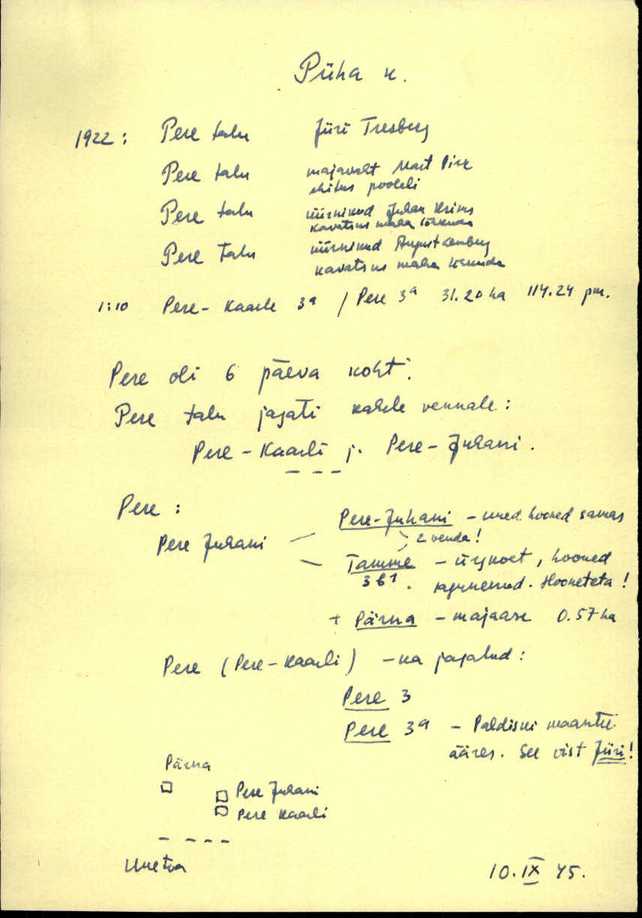 Püha k.
1922: Pere talu Jüri Tresberg
Pere talu majavalt Mart Pire
ehitus pooleli
Pere talu üürnikud Juhan
kavatsus maha lõhkuda
Pere Talu üürnikud August Lemberg
kavatsus maha lõhkuda
1:10 Pere-Kaarli 3a / Pere 3a 31.20 ha 114.24 pm.
Pere oli 6 päeva koht.
Pere talu jagati kahele vennale:
Pere-Kaarli j. Pere-Juhani.
Pere:
Pere Juhani
Pere-Juhani - uued hooned samas
2 venda!
Tamme - ürgkoht, hooned
3 b1. lagunenud. Hooneteta!
+ Pärna - majaase 0.57 ha
Pere (Pere-Kaarli) - ka jagatud:
Pere 3
Pere 3a - Paldiski maantee
ääres. See vist Jüri!
Pärna
Pere Juhani
Pere Kaarli
10.IX 75.